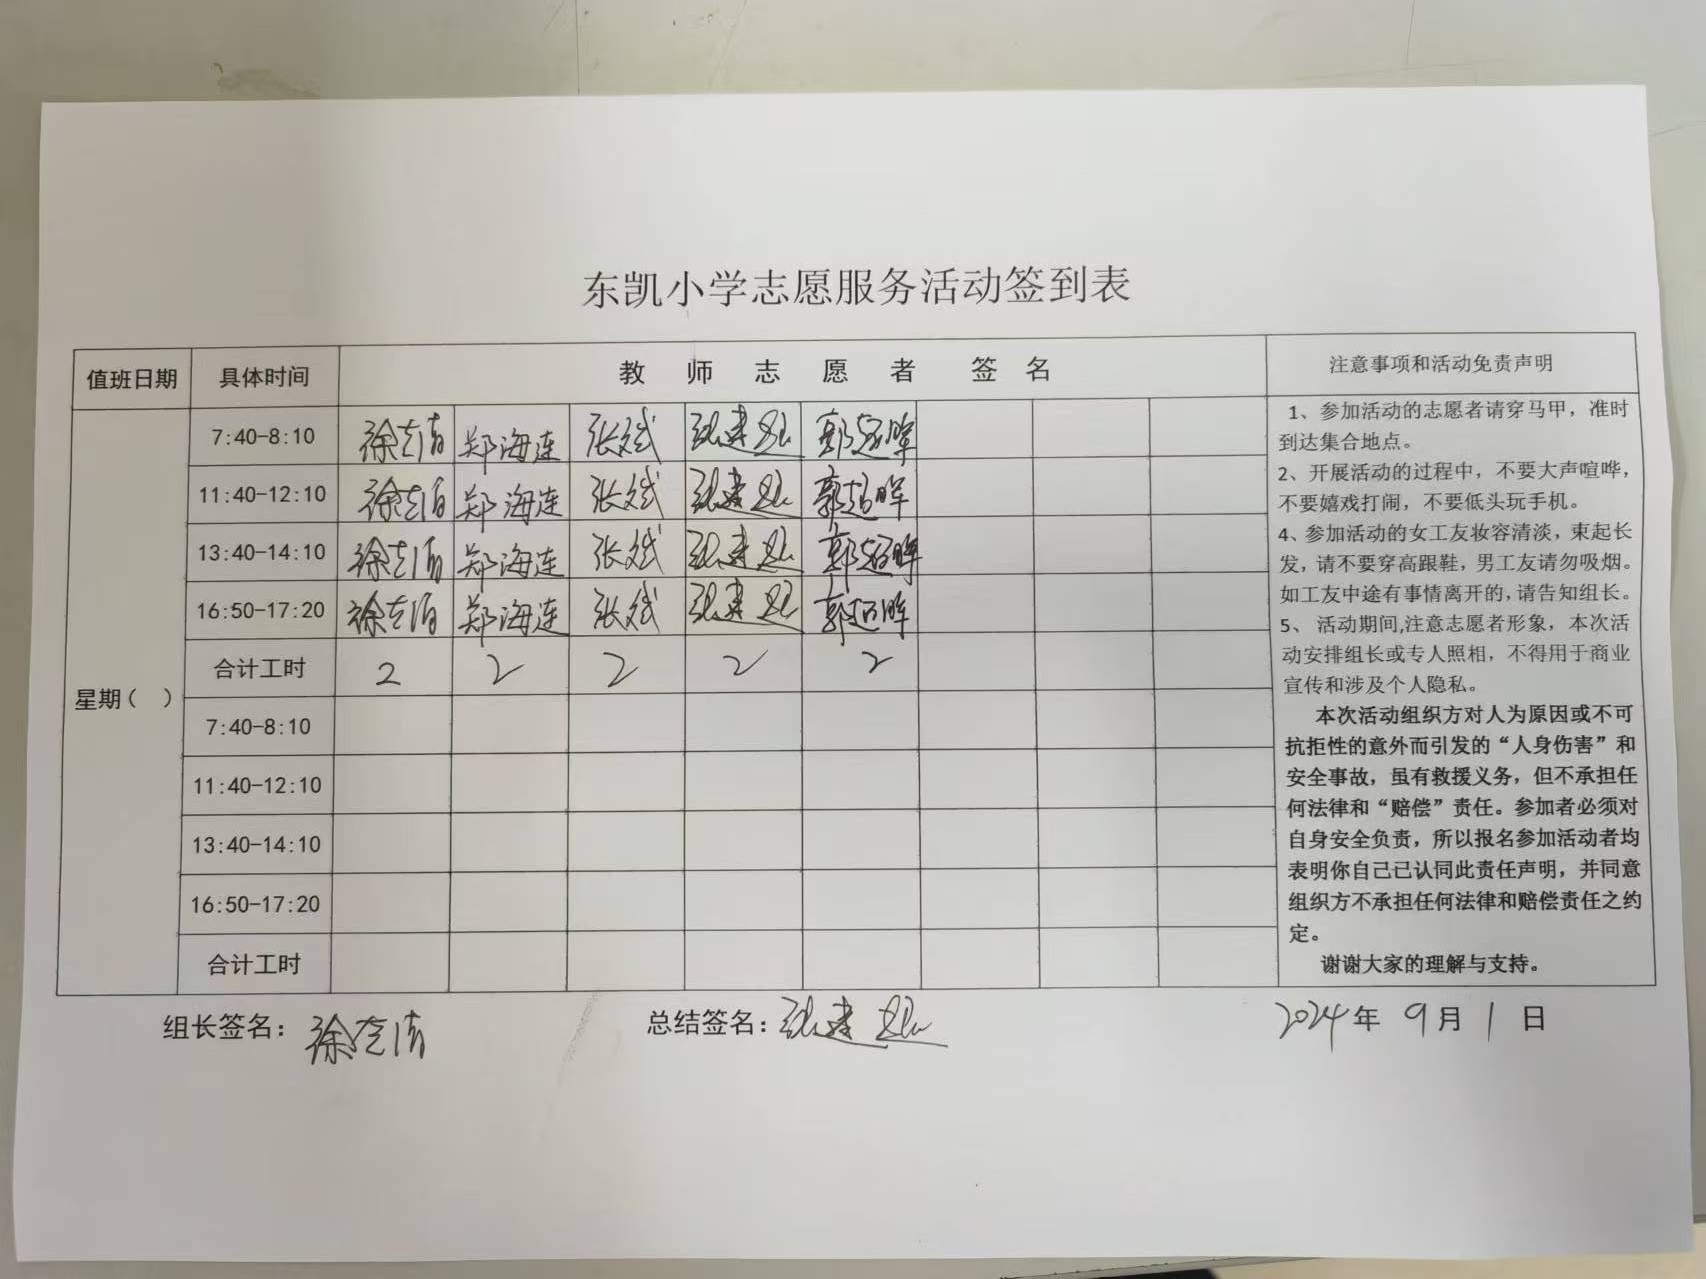 东凯小学志愿服务活动签到表
值班日期 具体时间 教师志愿者 签名 注意事项和活动免责声明
星期( )
7:40-8:10 徐志清 郑海连 张斌 张建 郭超晖
11:40-12:10 徐志清 郑海连 张斌 张建 郭超晖
13:40-14:10 徐志清 郑海连 张斌 张建 郭超晖
16:50-17:20 徐志清 郑海连 张斌 张建 郭超晖
合计工时 2 2 2 2 2
7:40-8:10
11:40-12:10
13:40-14:10
16:50-17:20
合计工时
1、参加活动的志愿者请穿马甲，准时
到达集合地点。
2、开展活动的过程中，不要大声喧哗，
不要嬉戏打闹，不要低头玩手机。
4、参加活动的女工友妆容清淡，束起长
发，请不要穿高跟鞋，男工友请勿吸烟。
如工友中途有事情离开的,请告知组长。
5、 活动期间,注意志愿者形象，本次活
动安排组长或专人照相，不得用于商业
宣传和涉及个人隐私。
本次活动组织方对人为原因或不可
抗拒性的意外而引发的“人身伤害”和
安全事故，虽有救援义务，但不承担任
何法律和“赔偿”责任。参加者必须对
自身安全负责，所以报名参加活动者均
表明你自己已认同此责任声明，并同意
组织方不承担任何法律和赔偿责任之约
定。
谢谢大家的理解与支持。
组长签名：徐志清 总结签名：张建 2024年 9月 1日